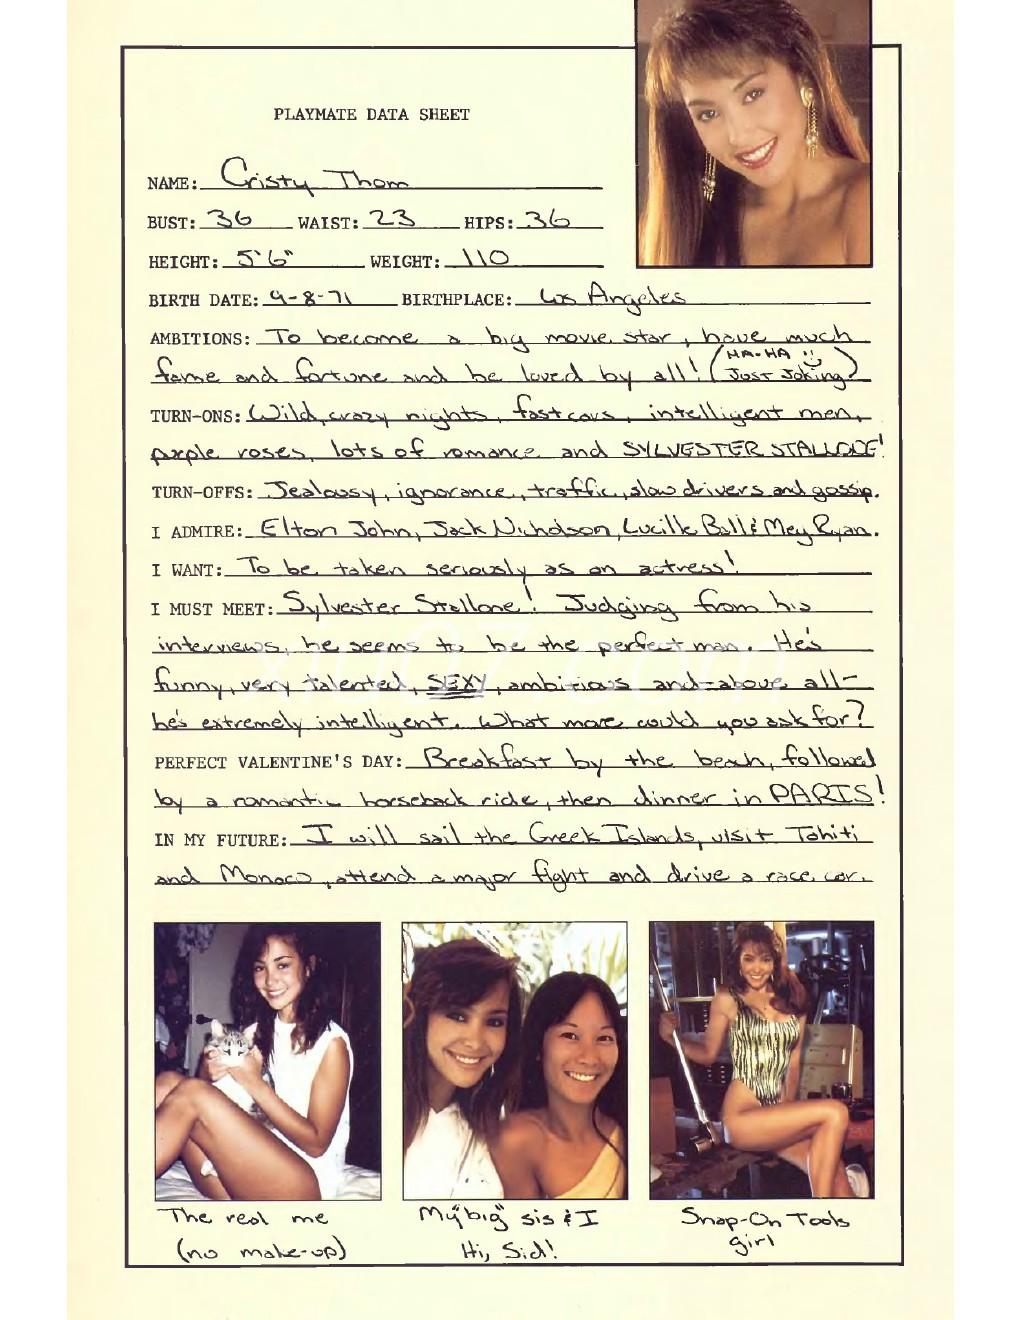 PLAYMATE DATA SHEET
NAME: Cristy Thom
BUST: 36 WAIST: 23 HIPS: 36
HEIGHT: 5'6" WEIGHT: 110
BIRTH DATE: 9-8-71 BIRTHPLACE: Los Angeles
AMBITIONS: To become a big movie star, have much
fame and fortune and be loved by all! (HA-HA Just Joking)
TURN-ONS: Wild, crazy nights, fast cars, intelligent men,
purple roses, lots of romance and SYLVESTER STALLONE!
TURN-OFFS: Jealousy, ignorance, traffic, slow drivers and gossip.
I ADMIRE: Elton John, Jack Nicholson, Lucille Ball & Meg Ryan.
I WANT: To be taken seriously as an actress!
I MUST MEET: Sylvester Stallone! Judging from his
interviews, he seems to be the perfect man. He's
funny, very talented, SEXY, ambitious and-above all-
he's extremely intelligent. What more could you ask for?
PERFECT VALENTINE'S DAY: Breakfast by the beach, followed
by a romantic horseback ride, then dinner in PARIS!
IN MY FUTURE: I will sail the Greek Islands, visit Tahiti
and Monaco, attend a major fight and drive a race car.
The real me
(no make-up)
My "big" sis & I
Hi, Sid!
Snap-On Tools
girl